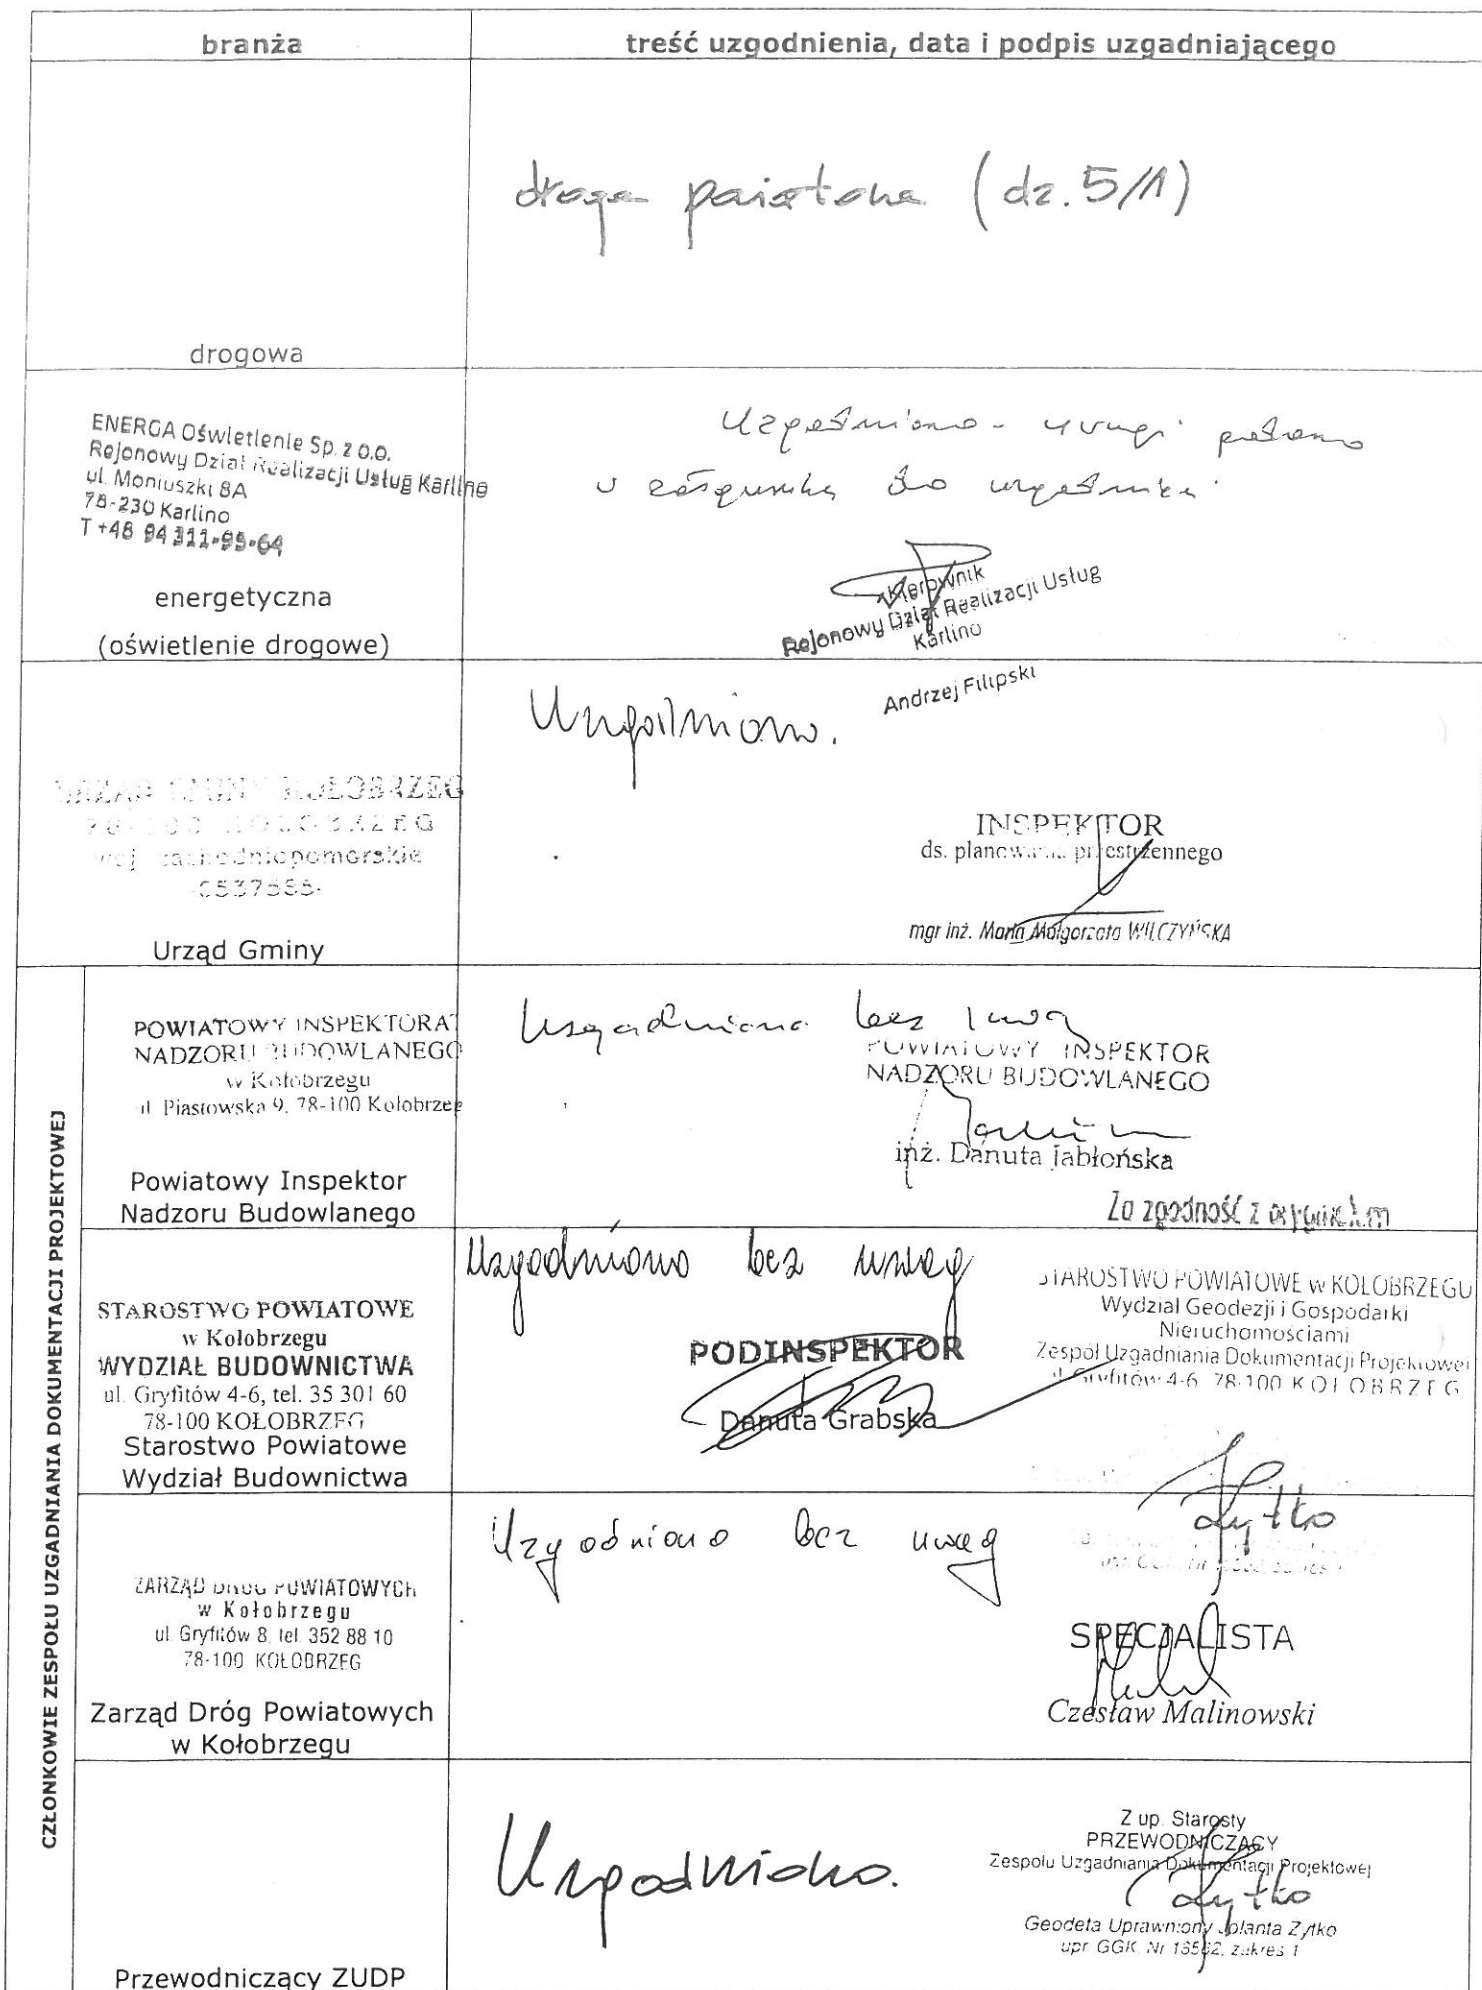 branża
treść uzgodnienia, data i podpis uzgadniającego
droga (dz. 5/1)
drogowa
ENERGA Oświetlenie Sp. z o.o.
Rejonowy Dział Realizacji Usług Karlino
ul. Moniuszki 8A
78-230 Karlino
T +48 94 311-95-64
energetyczna
(oświetlenie drogowe)
Uzgodniono - uwagi podano
w załączniku do uzgodnienia
Kierownik
Rejonowy Dział Realizacji Usług
Karlino
Andrzej Filipski
URZĄD GMINY KOŁOBRZEG
78-100 KOŁOBRZEG
woj. zachodniopomorskie
Urząd Gminy
Uzgodniono.
INSPEKTOR
ds. planowania przestrzennego
mgr inż. Maria Małgorzata WILCZYŃSKA
CZŁONKOWIE ZESPOŁU UZGADNIANIA DOKUMENTACJI PROJEKTOWEJ
POWIATOWY INSPEKTORAT
NADZORU BUDOWLANEGO
w Kołobrzegu
ul. Piastowska 9, 78-100 Kołobrzeg
Powiatowy Inspektor
Nadzoru Budowlanego
Uzgadniono bez uwag
POWIATOWY INSPEKTOR
NADZORU BUDOWLANEGO
inż. Danuta Jabłońska
Za zgodność z oryginałem
STAROSTWO POWIATOWE
w Kołobrzegu
WYDZIAŁ BUDOWNICTWA
ul. Gryfitów 4-6, tel. 35 301 60
78-100 KOŁOBRZEG
Starostwo Powiatowe
Wydział Budownictwa
Uzgodniono bez uwag
PODINSPEKTOR
Danuta Grabska
STAROSTWO POWIATOWE w KOŁOBRZEGU
Wydział Geodezji i Gospodarki
Nieruchomościami
Zespół Uzgadniania Dokumentacji Projektowej
ul. Gryfitów 4-6 78-100 KOŁOBRZEG
Żytko
ZARZĄD DRÓG POWIATOWYCH
w Kołobrzegu
ul. Gryfitów 8, tel. 352 88 10
78-100 KOŁOBRZEG
Zarząd Dróg Powiatowych
w Kołobrzegu
Uzgodniono bez uwag
SPECJALISTA
Czesław Malinowski
Przewodniczący ZUDP
Uzgodniono.
Z up. Starosty
PRZEWODNICZĄCY
Zespołu Uzgadniania Dokumentacji Projektowej
Żytko
Geodeta Uprawniony Jolanta Żytko
upr. GGK Nr 16562, zakres 1